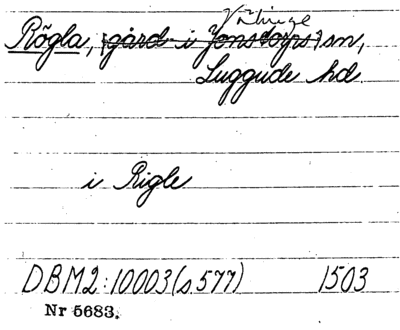 Välinge
Rögla, [gård i Jonstorps] sn,
Luggude hd.
i Rigle
DBM2:10003(s.577) 1503
Nr 5683.